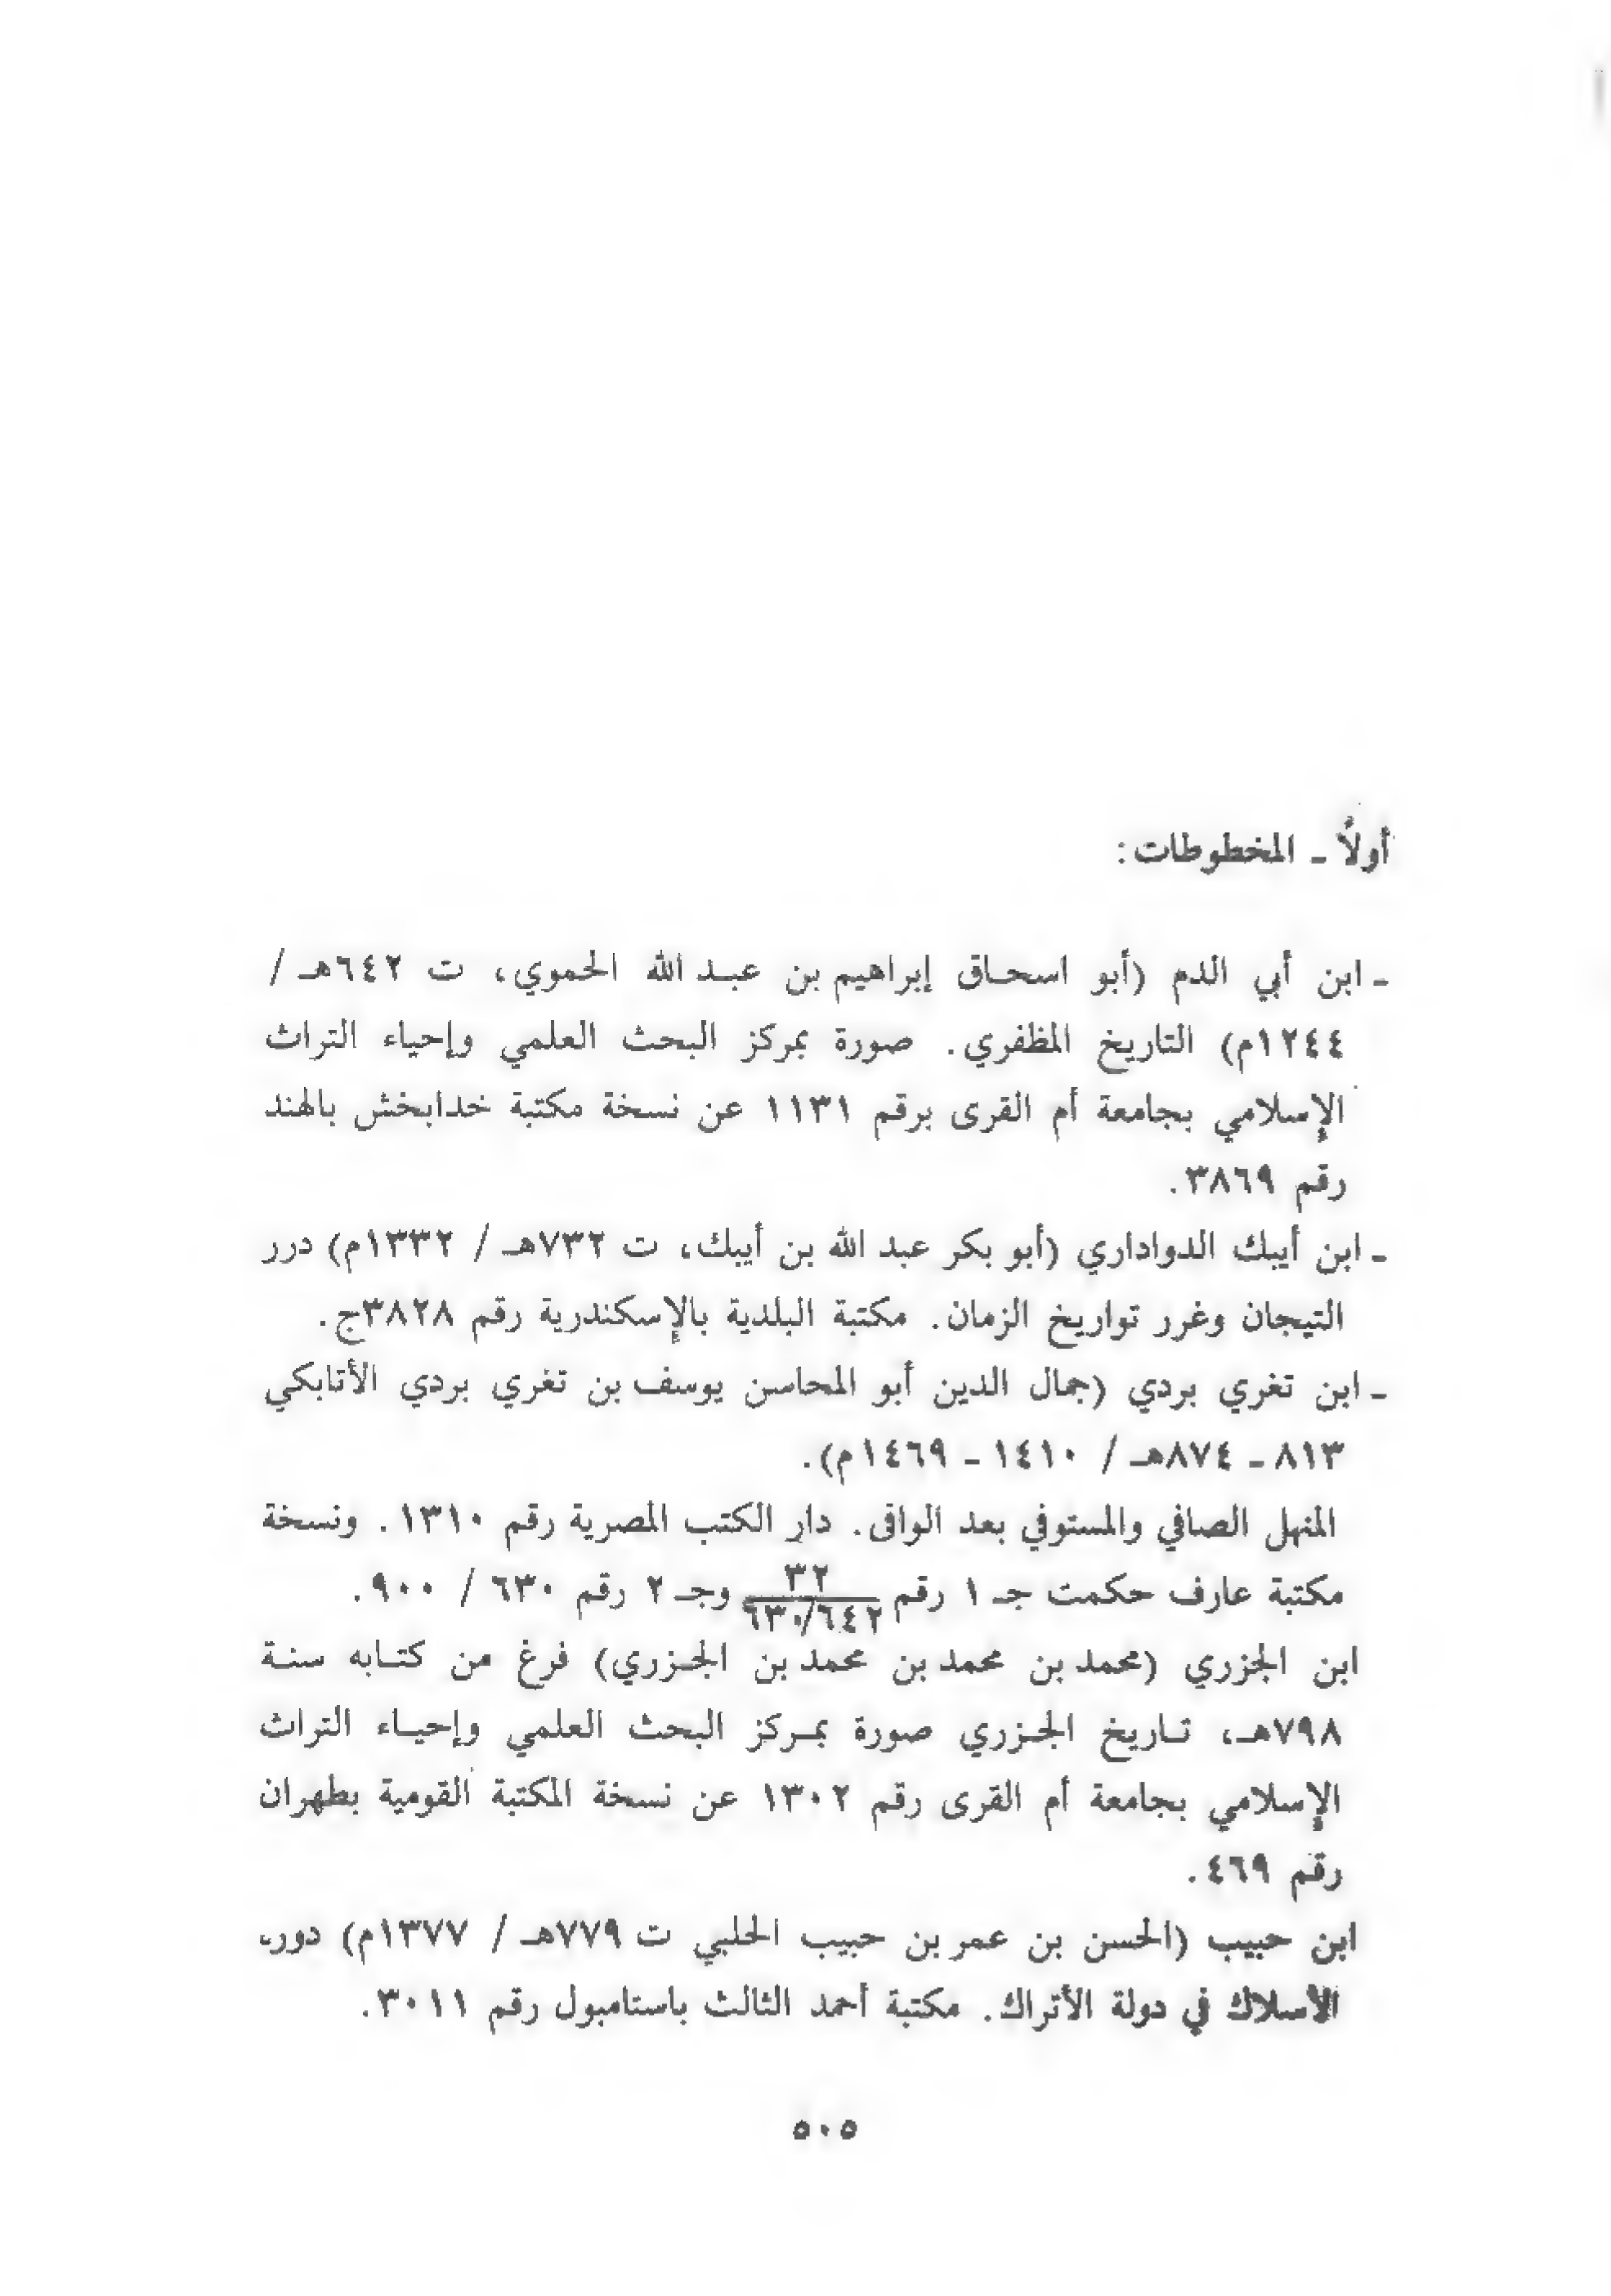 أولاً ـ المخطوطات:
ـ ابن أبي الدم (أبو اسحاق إبراهيم بن عبد الله الحموي، ت ٦٤٢هـ /
١٢٤٤م) التاريخ المظفري. صورة بمركز البحث العلمي وإحياء التراث
الإسلامي بجامعة أم القرى برقم ١١٣١ عن نسخة مكتبة خدابخش بالهند
رقم ٣٨٦٩.
ـ ابن أيبك الدواداري (أبو بكر عبد الله بن أيبك، ت ٧٣٢هـ / ١٣٣٢م) درر
التيجان وغرر تواريخ الزمان. مكتبة البلدية بالإسكندرية رقم ٣٨٢٨ج.
ـ ابن تغري بردي (جمال الدين أبو المحاسن يوسف بن تغري بردي الأتابكي
٨١٣ ـ ٨٧٤هـ / ١٤١٠ ـ ١٤٦٩م).
المنهل الصافي والمستوفي بعد الواقى. دار الكتب المصرية رقم ١٣١٠. ونسخة
مكتبة عارف حكمت جـ ١ رقم ٣٢ / ٦٣٠/٦٤٢ وجـ ٢ رقم ٦٣٠ / ٩٠٠.
ابن الجزري (محمد بن محمد بن محمد بن الجزري) فرغ من كتابه سنة
٧٩٨هـ، تاريخ الجزري صورة بمركز البحث العلمي وإحياء التراث
الإسلامي بجامعة أم القرى رقم ١٣٠٢ عن نسخة المكتبة القومية بطهران
رقم ٤٦٩.
ابن حبيب (الحسن بن عمر بن حبيب الحلبي ت ٧٧٩هـ / ١٣٧٧م) دور،
الأسلاك في دولة الأتراك. مكتبة أحمد الثالث باستامبول رقم ٣٠١١.
٥٠٥